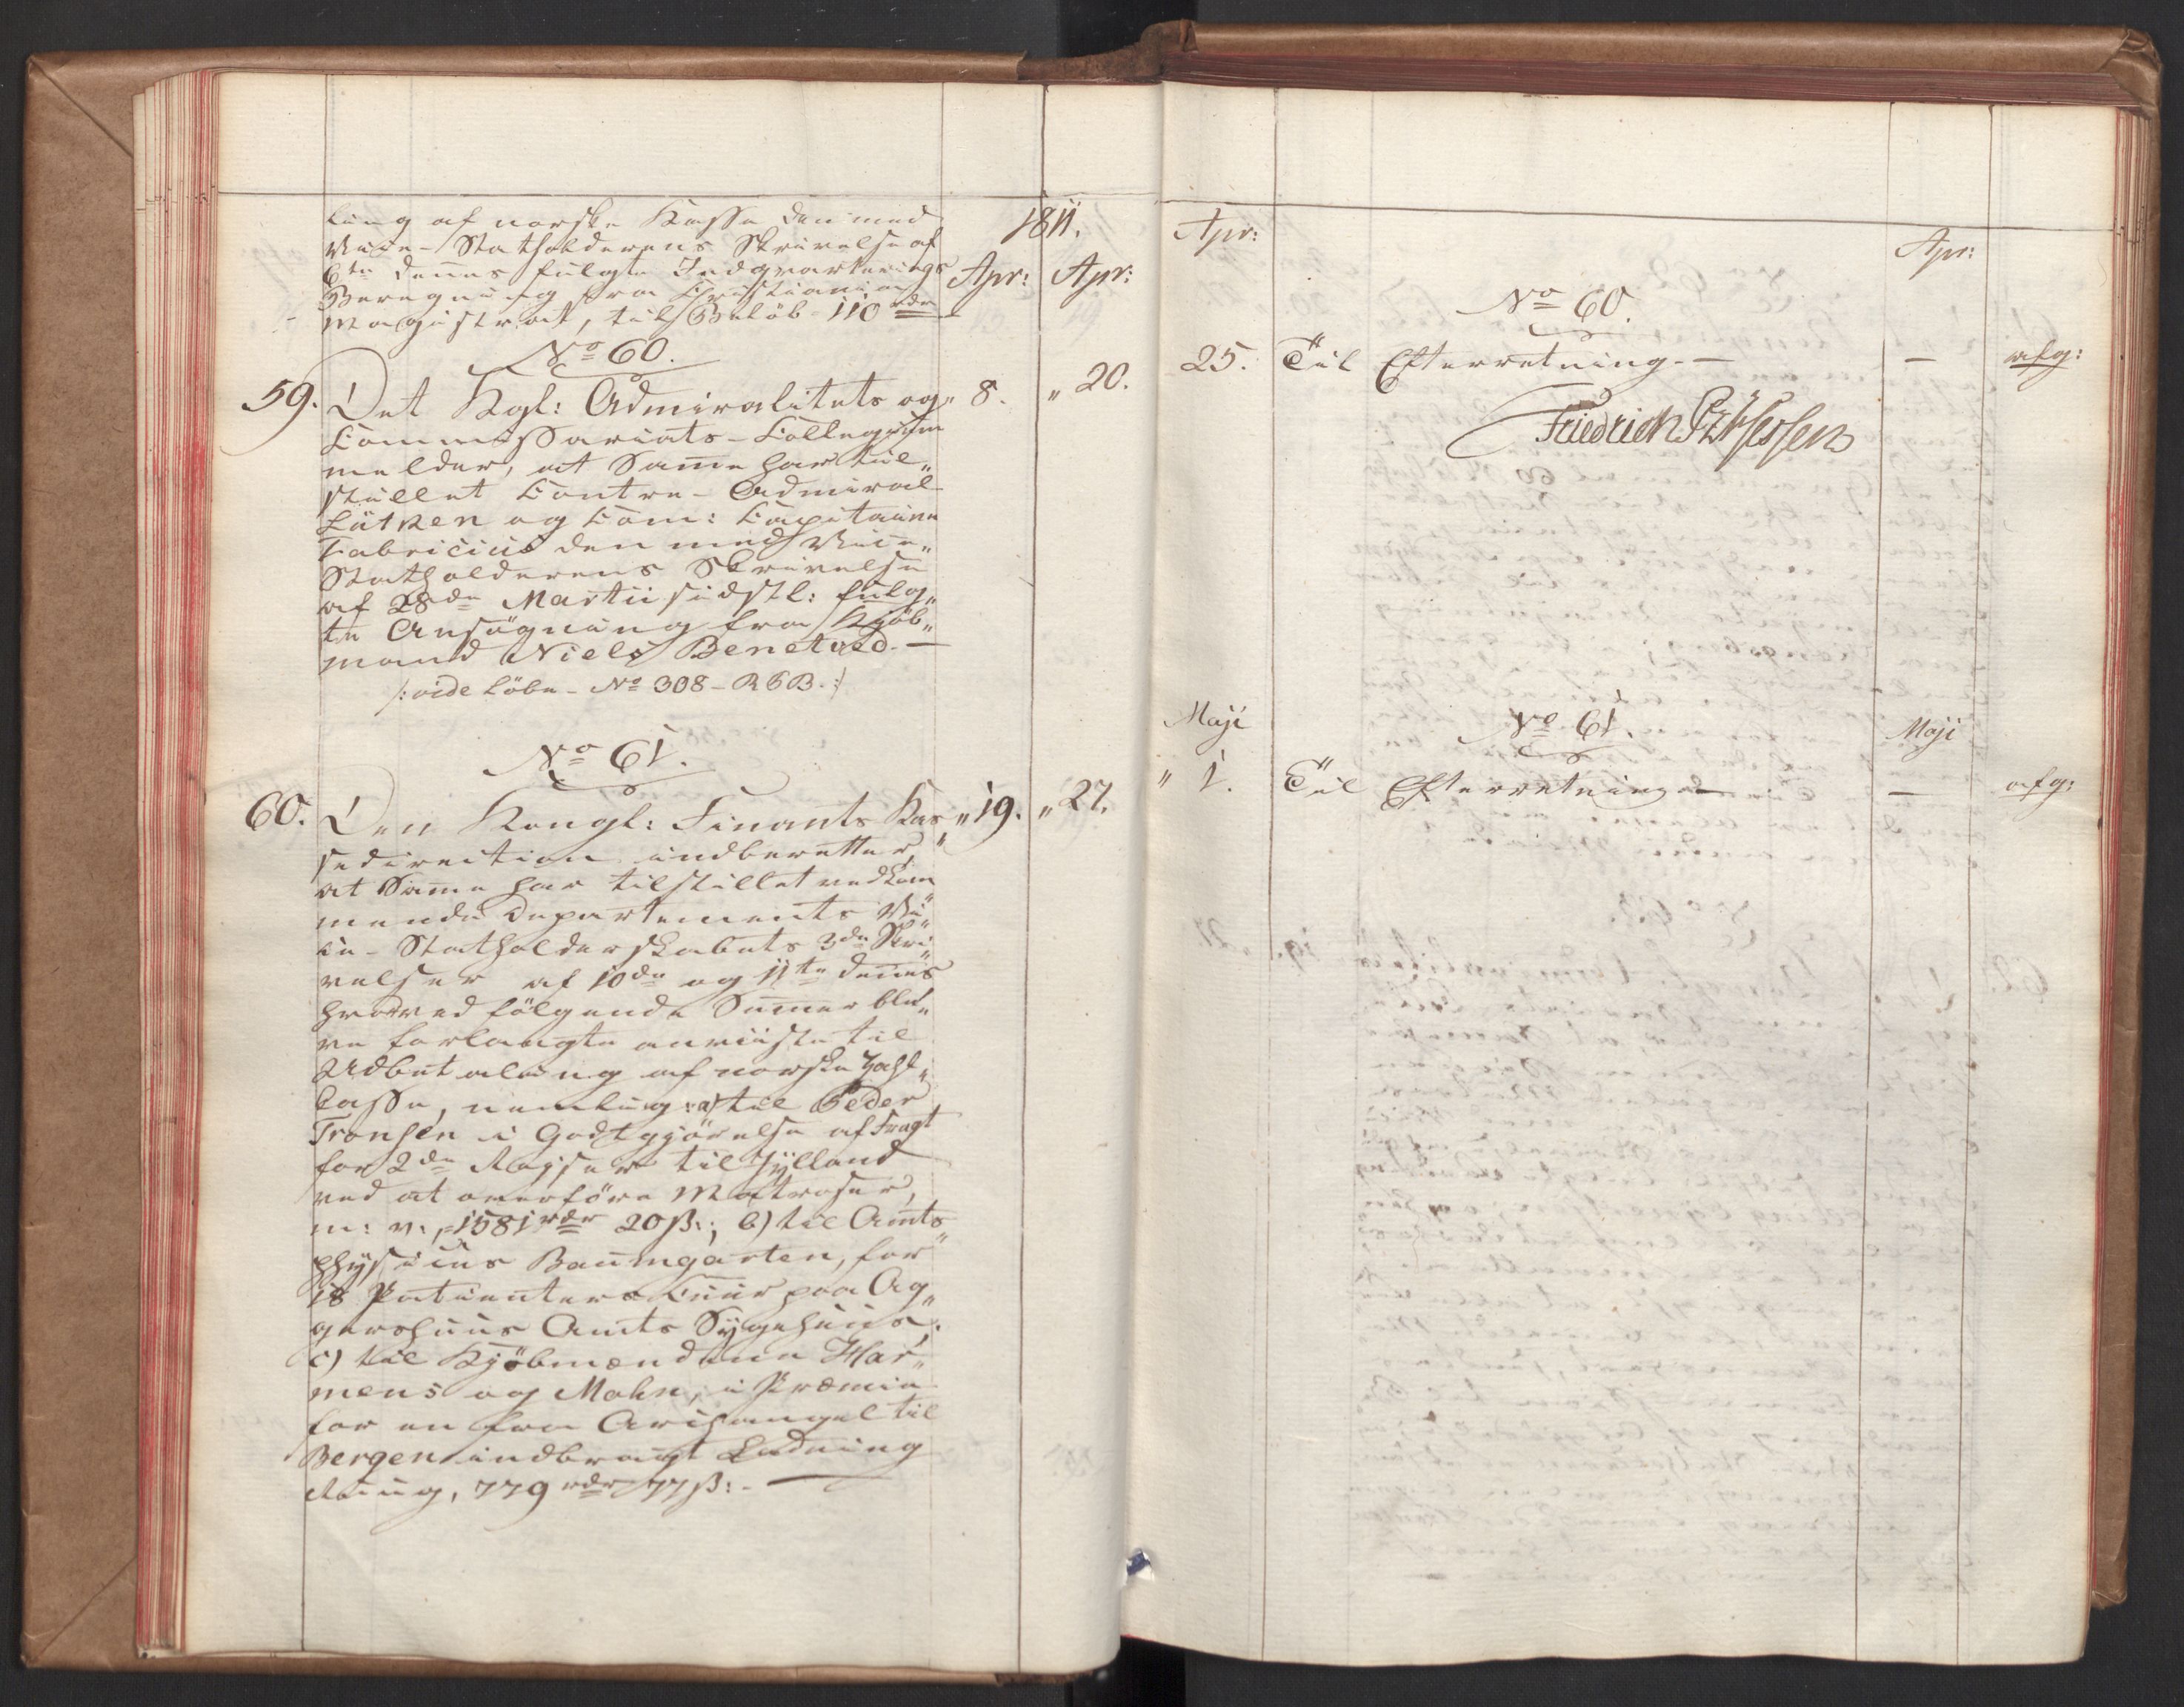 ling af norske Kasse den med
Vice-Statholderens Skrivelse af
6te dennes fulgte Indqvarterings
Beregning fra Christiania
Magistrat, til Beløb 110 rdr
1811.
Apr: Apr:
No 60.
59. Det Kgl: Admiralitets og „ 8. „ 20.
Commissariats-Collegium
melder, at Samme har til„
stillet Contre-Admiral
Lütken og Com: Capitaine
Fabricius den med Vice„
Statholderens Skrivelse
af 28de Martii sidstl: fulg„
te Ansøgning fra Kjøb„
mand Niels Benetved. —
/: vide Löbe-No 308-R6B. :/
No 61.
60. Den Kongl: Finants Kas„ „ 19. „ 27.
sedirection indberetter,
at Samme har tilstillet vedkom„
mende Departements Vi„
ce-Statholderskabets 3de Skri„
velser af 10de og 11te dennes
hvorved følgende Summer ble„
ve forlangte anviiste til
Udbetaling af norske Zahl„
Casse, nemlig: a) til Peder
Tronsen i Godtgjörelse af Fragt
for 2de Rejser til Jylland
ved at overföre Matroser,
m: v:, 1581 rdr 20 ß.; b) til Amts„
physicus Baumgarten, for
18 Patienters Cuur paa Ag„
gershuus Amts Sygehuus;
c) til Kjöbmændene Har„
mens og Mohn, i Præmie
for en fra Archangel til
Bergen indbragt Ladning
Ruug, 779 rdr 77 ß: —
Apr: Apr:
No 60.
25. Til Efterretning. — — afg:
Friedrich Pz v Hessen
Maji No 61. Maji
„ 1. Til Efterretning — — afg: